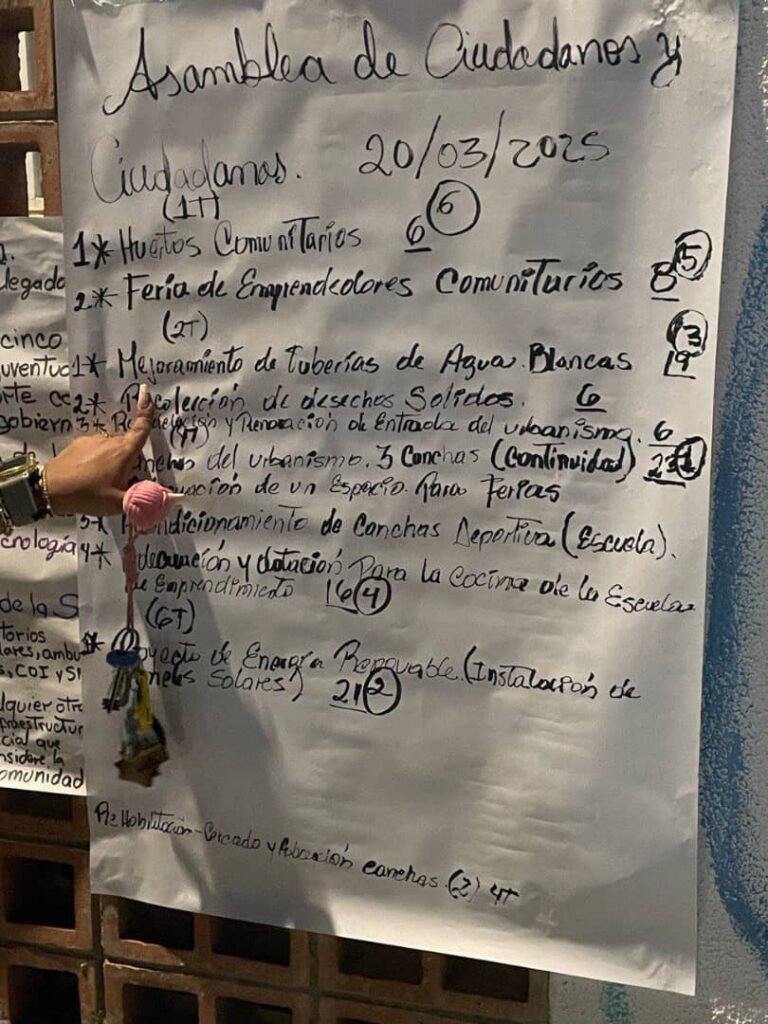 Asamblea de Ciudadanos y
Ciudadanas. 20/03/2025
(1T)
1* Huertos Comunitarios 6 6
2* Feria de Emprendedores Comunitarios 8 5
(2T)
1* Mejoramiento de Tuberías de Agua Blancas 19 3
2* Recolección de desechos Solidos. 6
3* y Renovación de Entrada del urbanismo. 6
(4T)
del urbanismo. 3 Canchas (Continuidad) 23 1
de un Espacio Para Ferias
5* Acondicionamiento de Canchas Deportiva (Escuela).
4* Adecuación y dotación Para la Cocina de la Escuela
de Emprendimiento 16 4
(6T)
1* Proyecto de Energía Renovable. (Instalación de
Solares) 21 2
ReHabilitación - Cercado y canchas (2) 4T
legado
cinco
uventud
rte
gobiern
cnología
de la S
torios
lares, ambu
s, COI y SI
lquier otra
fraestructur
cial que
nsidere la
omunidad